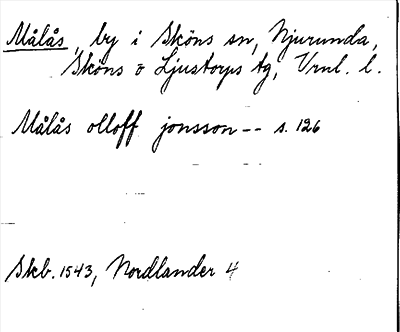 Målås, by i Sköns sn, Njurunda,
Sköns o Ljustorps tg, Vrnl. l.
Målås olloff jonsson -- s. 126
Skb. 1543, Nordlander 4